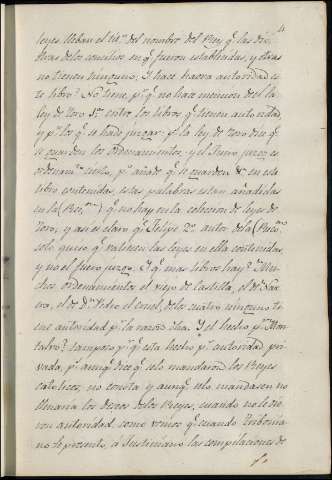 4
leyes lleban el tit.º del nombre del Rey q.e las dió,
otras de los concilios en q.e fueron establecidas, y otras
no tienen ninguno. Y hace haora autoridad es-
te libro? No tiene, p.r q.e no hace mencion de el la
ley de Toro 1.ª entre los libros q.e tienen autoridad,
y p.r los q.e se ha de juzgar: la ley de Toro dice q.e
se guarden los Ordenamientos, y el Fuero juzgo es
ordenam.to cierto, p.r añade q.e se guarden en este
libro contenidas, estas palabras estan añadidas
en la (Rec.on) q.e no hay en la coleccion de leyes de
Toro, y asi es claro q.e Felipe 2.º autor de la (Reco.on)
solo quiso q.e valiesen las leyes en ella contenidas,
y no el fuero juzgo. Y q.e mas libros hay? Mu-
chos ordenamientos el viejo de Castilla, el D.n San-
cho, el de D.n Pedro el cruel, de los cuatro ninguno tie-
ne autoridad p.r la razon dha. Y el hecho p.r Mon-
talvo? tampoco p.r q.e esta hecho p.r autoridad pri-
vada, p.s aunq.e dice q.e selo mandaron los Reyes
catolicos, no consta y aunq.e selo mandasen no
llenaria los deseos de los Reyes, cuando no le dió
con autoridad como vemos q.e cuando Tribonia-
no le presentó, á Justiniano las compilaciones de